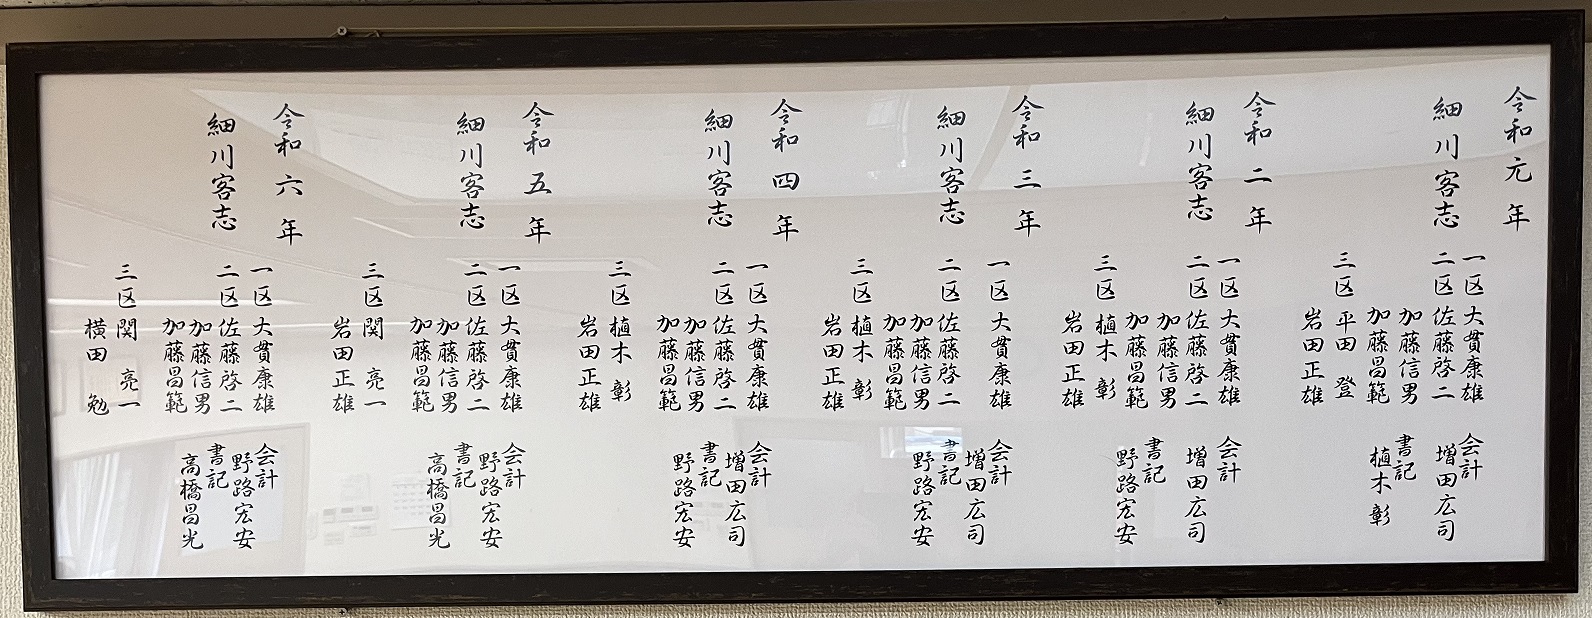 令和元年
細川客志
一区 大貫康雄
二区 佐藤啓二
加藤信男
加藤昌範
三区 平田 登
岩田正雄
会計
増田広司
書記
植木彰
令和二年
細川客志
一区 大貫康雄
二区 佐藤啓二
加藤信男
加藤昌範
三区 植木 彰
岩田正雄
会計
増田広司
書記
野路宏安
令和三年
細川客志
一区 大貫康雄
二区 佐藤啓二
加藤信男
加藤昌範
三区 植木 彰
岩田正雄
会計
増田広司
書記
野路宏安
令和四年
細川客志
一区 大貫康雄
二区 佐藤啓二
加藤信男
加藤昌範
三区 植木 彰
岩田正雄
会計
増田広司
書記
野路宏安
令和五年
細川客志
一区 大貫康雄
二区 佐藤啓二
加藤信男
加藤昌範
三区 関 亮一
岩田正雄
会計
野路宏安
書記
高橋昌光
令和六年
細川客志
一区 大貫康雄
二区 佐藤啓二
加藤信男
加藤昌範
三区 関 亮一
横田 勉
会計
野路宏安
書記
高橋昌光